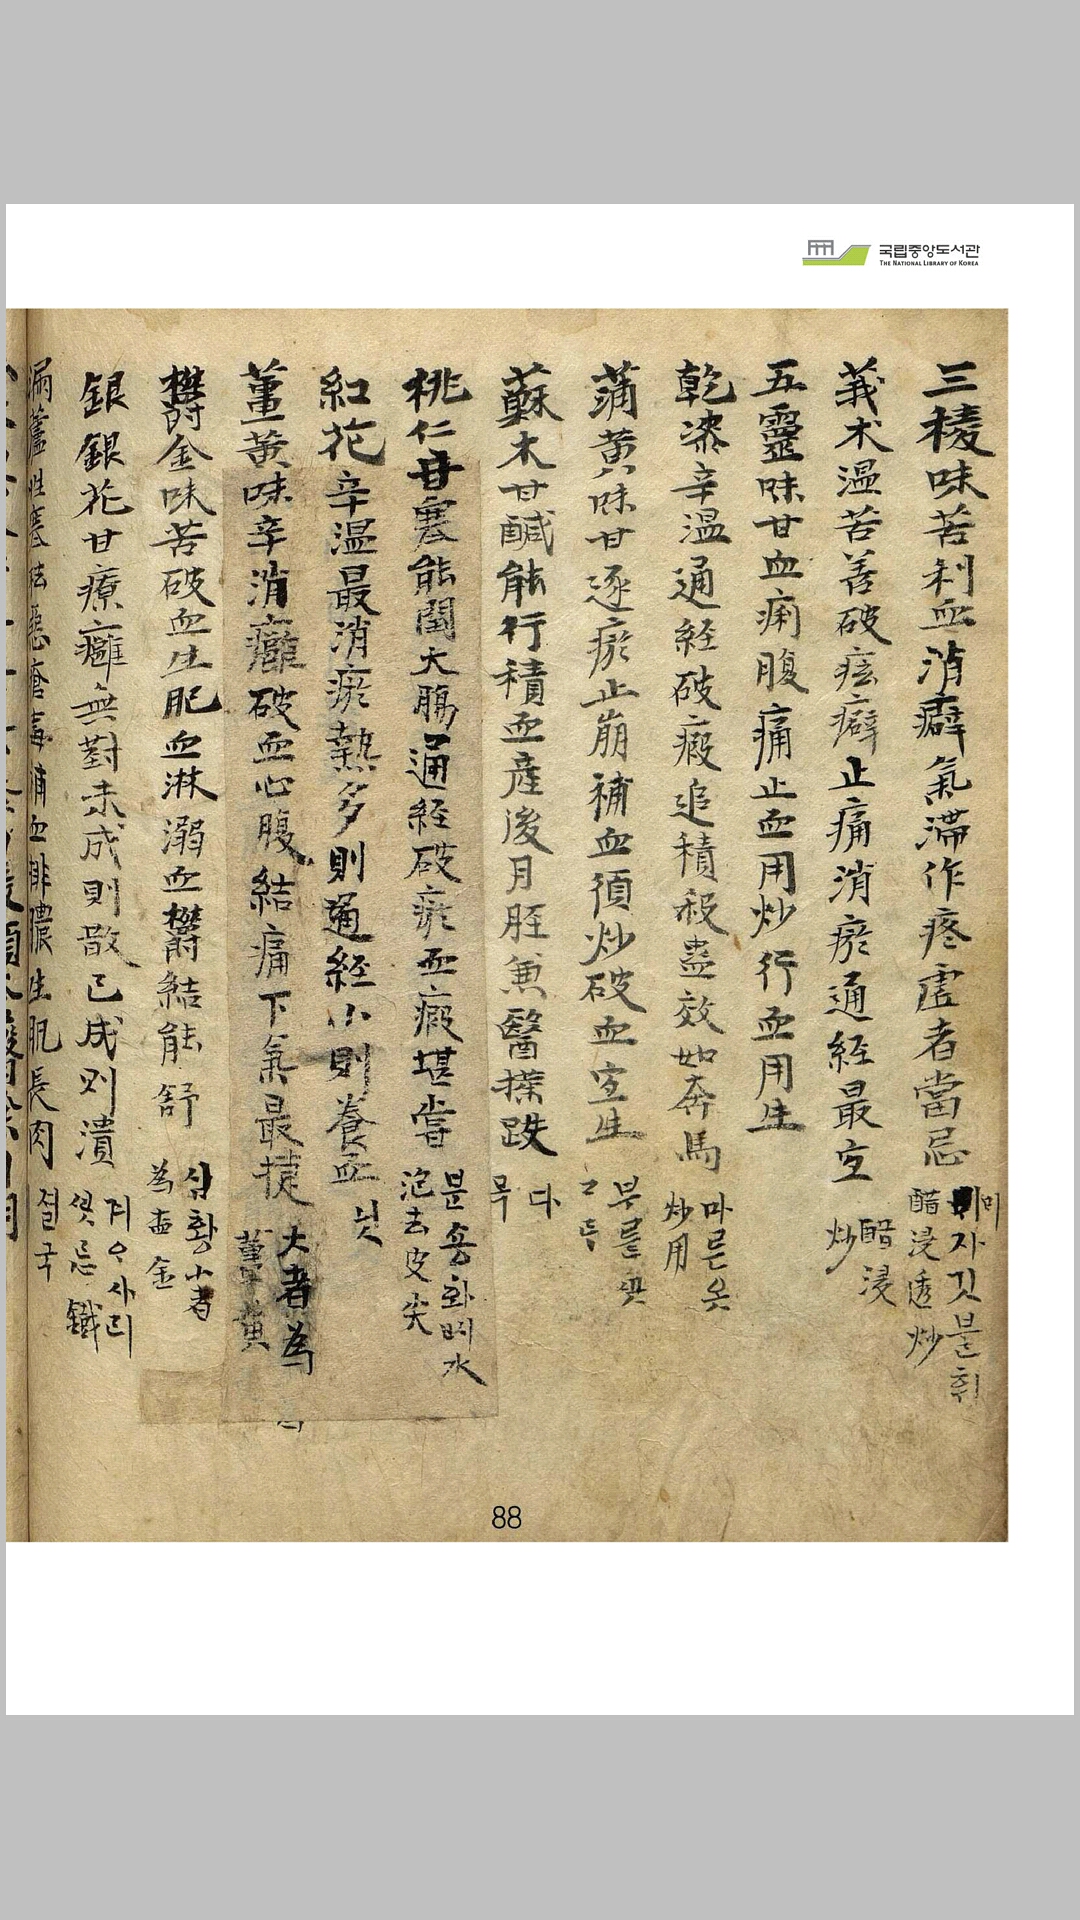 국립중앙도서관
THE NATIONAL LIBRARY OF KOREA
三稜味苦利血消癖氣滯作疼虛者當忌 미자깃불휘 醋浸透炒
莪朮溫苦善破痃癖止痛消瘀通経最宜 醋浸炒
五靈味甘血痢腹痛止血用炒行血用生
乾漆辛溫通経破瘕追積殺蟲效如奔馬 마른옷 炒用
蒲黃味甘逐瘀止崩補血須炒破血宜生 부들
蘇木甘鹹能行積血産後月経兼醫撲跌 다목
桃仁甘寒能潤大腸通経破瘀血瘕堪嘗 水泡去皮尖
紅花辛溫最消瘀熱多則通経小則養血 닛
薑黃味辛消癰破血心腹結痛下氣最捷 大者為薑黃
欝金味苦破血生肥血淋溺血欝結能舒 심황小者為欝金
銀銀花甘療癰無對未成則散已成則潰 겨으사리 忌鐵
漏蘆性寒祛惡瘡毒補血排膿生肌長肉 절국
88